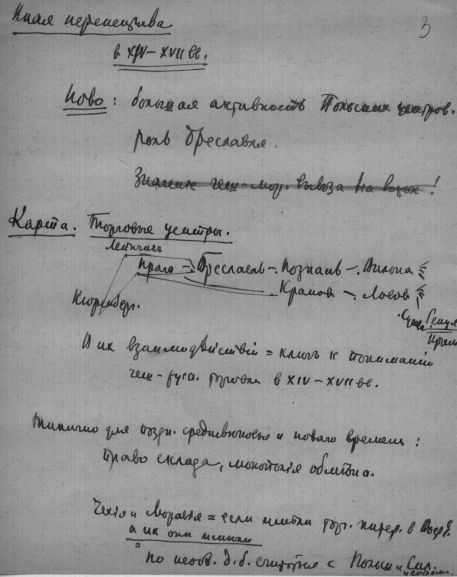 3
Иная перспектива
в XIV–XVII вв.
Ново: большая активность Польских центров.
роль Бреславля.
Значение чеш-мор. вывоза на восток!
Карта. Торговые центры.
Лейпциг
Прага – Бреславль – Познань – Вильна
Краков – Львов
Нюрнберг.
Генуя
И их взаимодействие = ключ к пониманию
чеш-русск. торговли в XIV–XVII вв.
Типично для поздн. средневековья и нового времени:
Право склада, монополия обмена.
Чехия и Моравия = если имели торг. интер. в Вост.
а их они имели
= по необх. д. б. считаться с Польшей и Сил.